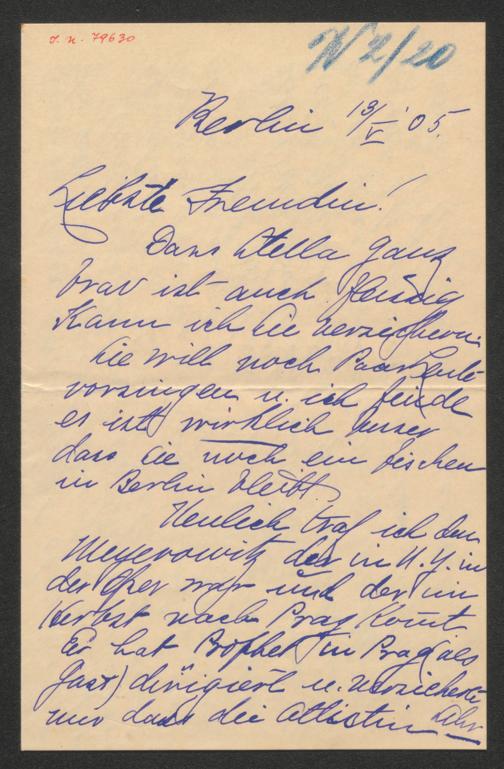 J. N. 79630
N 2/20
Berlin 19/V '05.
Liebste Freundin!
Dass Stella ganz
brav ist auch fleissig
kann ich Sie versichern.
Sie will noch Paar Leute
vorsingen u. ich finde
es ist wirklich besser
dass sie noch ein bischen
in Berlin bleibt.
Neulich traf ich den
Meyerowitz der in N.Y. in
der Oper war und der im
Herbst nach Prag kommt
Er hat Prophet (in Prag als
Gast) dirigiert u. versicherte
mir dass die Altistin